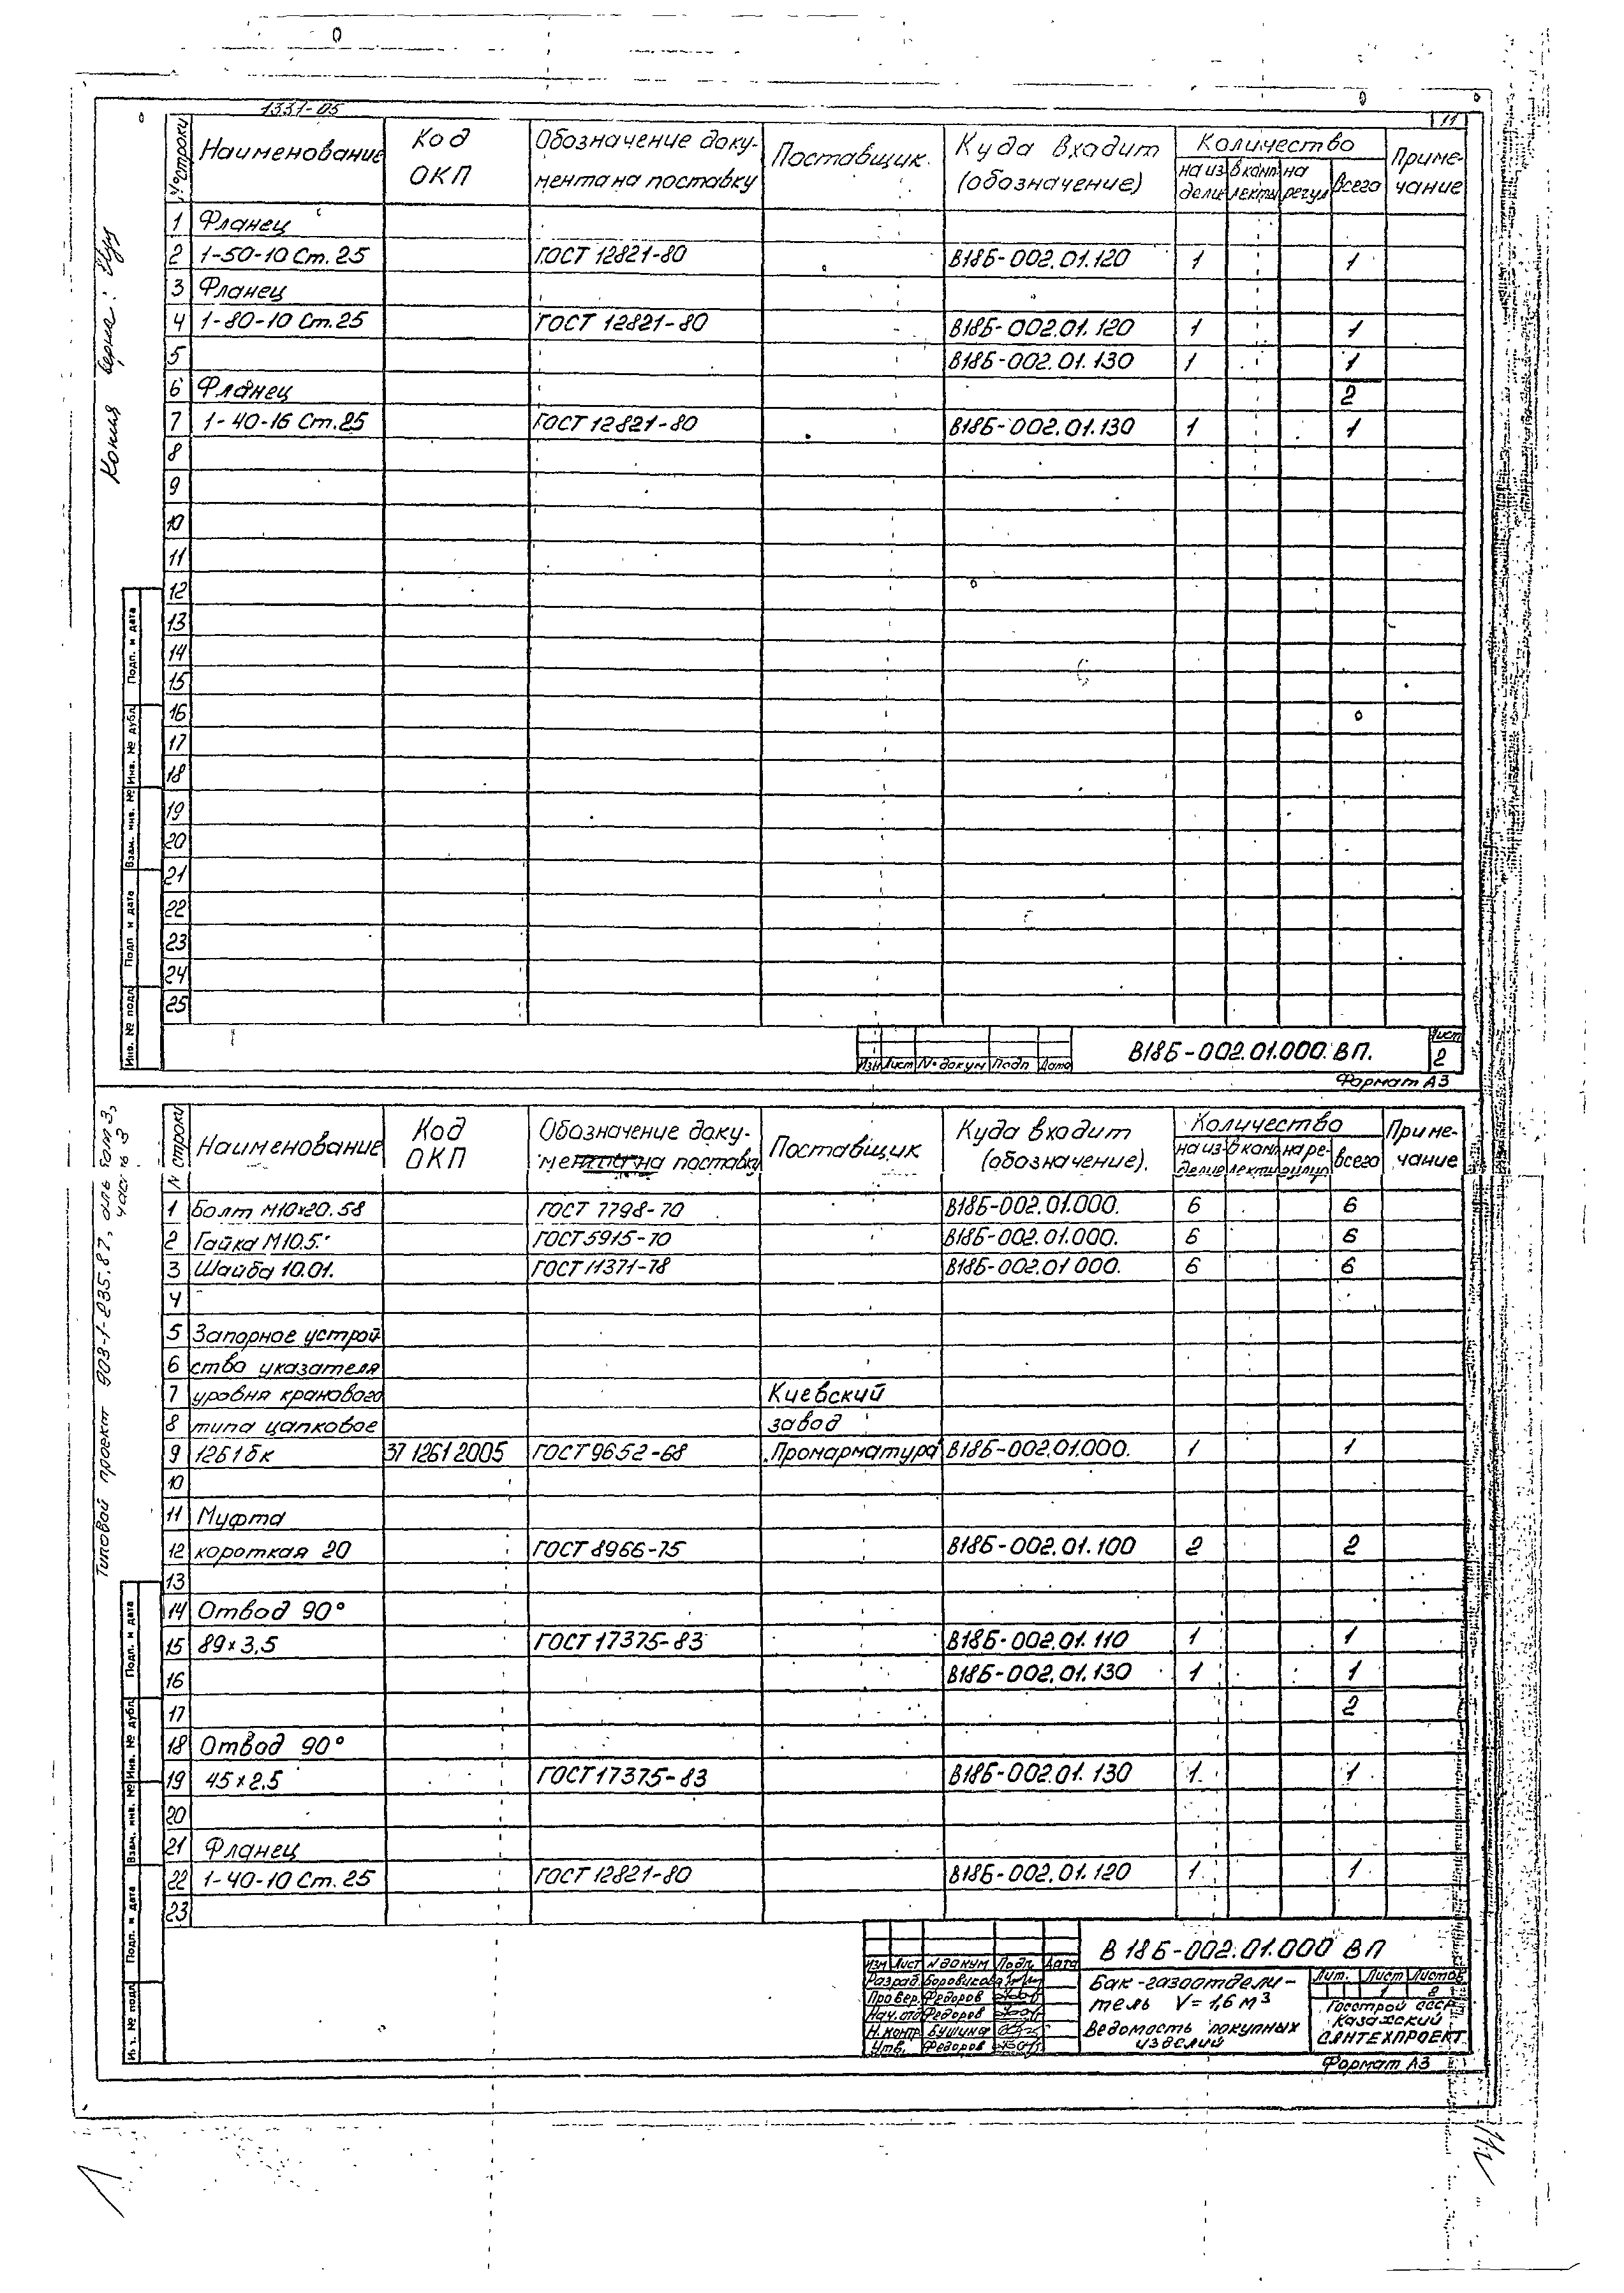 1331-05
11
№ строки Наименование Код ОКП Обозначение доку-мента на поставку Поставщик. Куда входит (обозначение) Количество на из-делие в комп-лекты на регул всего Приме-чание
1 Фланец
2 1-50-10 Ст. 25 ГОСТ 12821-80 В18Б-002.01.120 1 1
3 Фланец
4 1-80-10 Ст. 25 ГОСТ 12821-80 В18Б-002.01.120 1 1
5 В18Б-002.01.130 1 1
6 Фланец 2
7 1-40-16 Ст. 25 ГОСТ 12821-80 В18Б-002.01.130 1 1
8
9
10
11
12
13
14
15
16
17
18
19
20
21
22
23
24
25
Копия верна:
Подп. и дата
Инв. № дубл
Взам. инв. №
Подп и дата
Инв. № подл
Изм Лист № докум Подп Дата
В18Б-002.01.000. ВП.
Лист
2
Формат А3
Типовой проект 903-1-235.87, альбом 3,
часть 3
N строки Наименование Код ОКП Обозначение доку-мента на поставку Поставщик Куда входит (обозначение). Количество на из-делие в комп-лекты на ре-гулир всего Приме-чание
1 Болт М10х20.58 ГОСТ 7798-70 В18Б-002.01.000. 6 6
2 Гайка М10.5. ГОСТ 5915-70 В18Б-002.01.000. 6 6
3 Шайба 10.01. ГОСТ 11371-78 В18Б-002.01 000. 6 6
4
5 Запорное устрой
6 ство указателя
7 уровня кранового Киевский
8 типа цапковое завод
9 12Б1бк 37 1261 2005 ГОСТ 9652-68 Промарматура В18Б-002.01.000. 1 1
10
11 Муфта
12 короткая 20 ГОСТ 8966-75 В18Б-002.01.100 2 2
13
14 Отвод 90°
15 89х3,5 ГОСТ 17375-83 В18Б-002.01.110 1 1
16 В18Б-002.01.130 1 1
17 2
18 Отвод 90°
19 45х2.5 ГОСТ 17375-83 В18Б-002.01.130 1 1
20
21 Фланец
22 1-40-10 Ст. 25 ГОСТ 12821-80 В18Б-002.01.120 1 1
23
Подп. и дата
Инв. № дубл
Взам. инв. №
Подп. и дата
Инв. № подл
Изм Лист N докум Подп. Дата
Разраб Боровикова
Провер. Федоров
Нач. отд Федоров
Н. контр Бушина
Утв. Федоров
В 18Б-002.01.000 ВП
Бак-газоотдели-
тель V=1,6 м³
Ведомость покупных
изделий
Лит. Лист Листов
1 8
Госстрой СССР
Казахский
САНТЕХПРОЕКТ
Формат А3